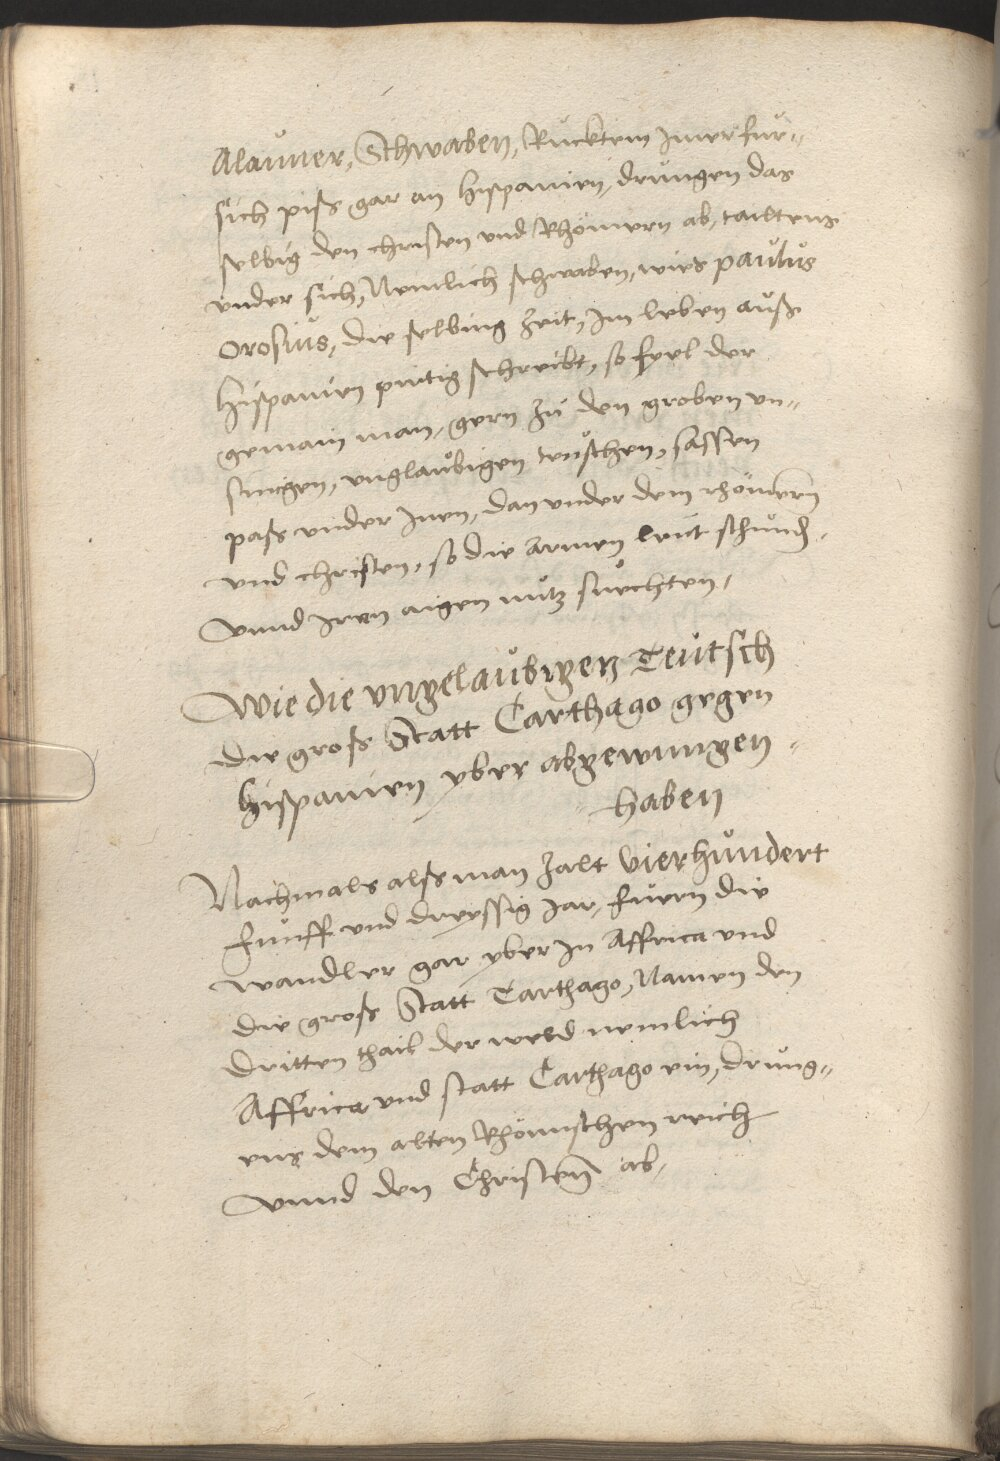 Alanner, Schwaben, Ruckten Imer für-
sich piß gar an hispanien, drungen das
selbig den christen vnd Rhömern ab, tailtens
vnder sich, Nemlich schwaben, wies paulus
Orosius, die selbing zeit, Im leben auß
hispanien pürtig schreibt, so fyel der
gemain man, gern zu den groben vn-
sinigen, vnglaubigen teutschen, sassen
paß vnder Inen, dan vnder dem rhömern
vnd christen, so die Armen leut schunden
Vnnd Iren aigen nutz suechten,
Wie die vngelaubigen Teutsch
die groß Statt Carthago gegen
hispanien yber abgewungen
haben
Nachmals alß man zalt Vierhundert
funff vnd dreyssig Jar, fuern die
wandler gar yber In Affrica vnd
die groß Statt Carthago, Namen den
dritten thail der weld nemlich
Affrica vnd statt Carthago ein, drung-
ens dem alten Rhömischen reich
Vnnd den Christen ab,